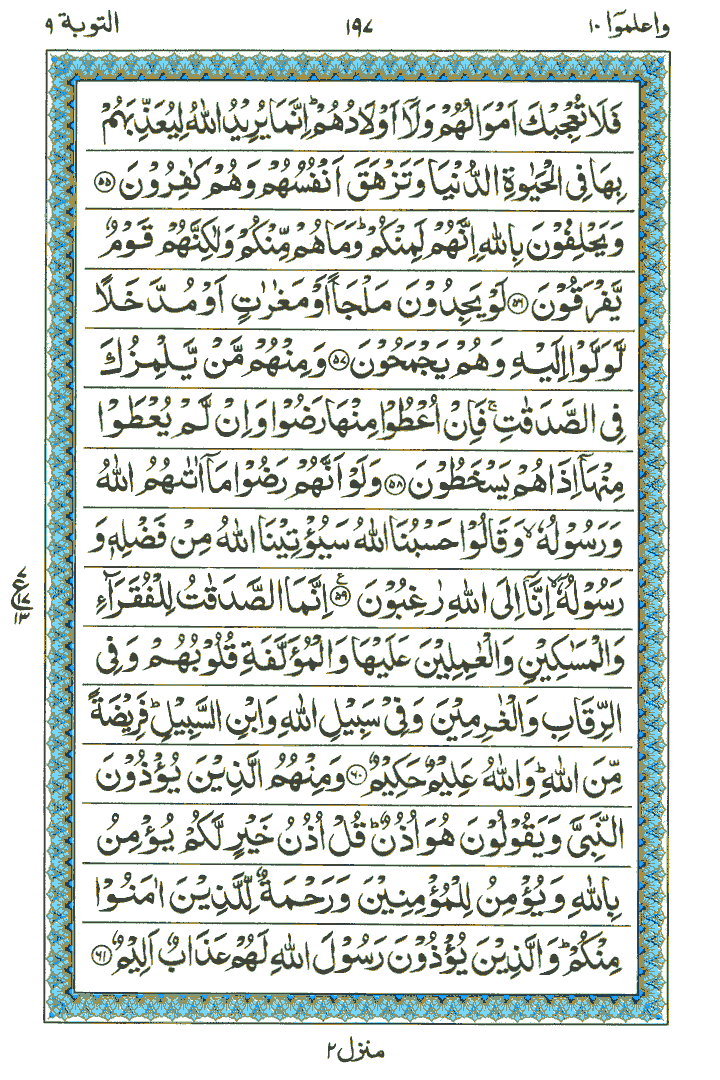 واعلموٓا ١٠ ١٩٧ التوبة ٩
فَلَا تُعۡجِبۡكَ اَمۡوَالُهُمۡ وَلَاۤ اَوۡلَادُهُمۡ ؕ اِنَّمَا يُرِيۡدُ اللّٰهُ لِيُعَذِّبَهُمۡ
بِهَا فِى الۡحَيٰوةِ الدُّنۡيَا وَتَزۡهَقَ اَنۡفُسُهُمۡ وَهُمۡ كٰفِرُوۡنَ ﴿۵۵﴾
وَيَحۡلِفُوۡنَ بِاللّٰهِ اِنَّهُمۡ لَمِنۡكُمۡ ؕ وَمَا هُمۡ مِّنۡكُمۡ وَلٰكِنَّهُمۡ قَوۡمٌ
يَّفۡرَقُوۡنَ ﴿۵۶﴾ لَوۡ يَجِدُوۡنَ مَلۡجَاً اَوۡ مَغٰرٰتٍ اَوۡ مُدَّخَلًا
لَّوَلَّوۡا اِلَيۡهِ وَهُمۡ يَجۡمَحُوۡنَ ﴿۵۷﴾ وَمِنۡهُمۡ مَّنۡ يَّلۡمِزُكَ
فِى الصَّدَقٰتِ ۚ فَاِنۡ اُعۡطُوۡا مِنۡهَا رَضُوۡا وَاِنۡ لَّمۡ يُعۡطَوۡا
مِنۡهَاۤ اِذَا هُمۡ يَسۡخَطُوۡنَ ﴿۵۸﴾ وَلَوۡ اَنَّهُمۡ رَضُوۡا مَاۤ اٰتٰٮهُمُ اللّٰهُ
وَرَسُوۡلُهٗ ۙ وَقَالُوۡا حَسۡبُنَا اللّٰهُ سَيُؤۡتِيۡنَا اللّٰهُ مِنۡ فَضۡلِهٖ وَ
رَسُوۡلُهٗۤ ۙ اِنَّاۤ اِلَى اللّٰهِ رٰغِبُوۡنَ ﴿۵۹﴾ اِنَّمَا الصَّدَقٰتُ لِلۡفُقَرَآءِ
وَالۡمَسٰكِيۡنِ وَالۡعٰمِلِيۡنَ عَلَيۡهَا وَالۡمُؤَلَّفَةِ قُلُوۡبُهُمۡ وَفِى
الرِّقَابِ وَالۡغٰرِمِيۡنَ وَفِىۡ سَبِيۡلِ اللّٰهِ وَابۡنِ السَّبِيۡلِ ؕ فَرِيۡضَةً
مِّنَ اللّٰهِ ؕ وَاللّٰهُ عَلِيۡمٌ حَكِيۡمٌ ﴿۶۰﴾ وَمِنۡهُمُ الَّذِيۡنَ يُؤۡذُوۡنَ
النَّبِىَّ وَيَقُوۡلُوۡنَ هُوَ اُذُنٌ ؕ قُلۡ اُذُنُ خَيۡرٍ لَّكُمۡ يُؤۡمِنُ
بِاللّٰهِ وَيُؤۡمِنُ لِلۡمُؤۡمِنِيۡنَ وَرَحۡمَةٌ لِّلَّذِيۡنَ اٰمَنُوۡا
مِنۡكُمۡ ؕ وَالَّذِيۡنَ يُؤۡذُوۡنَ رَسُوۡلَ اللّٰهِ لَهُمۡ عَذَابٌ اَلِيۡمٌ ﴿۶۱﴾
٧
ع
١٧
١٣
منزل ٢